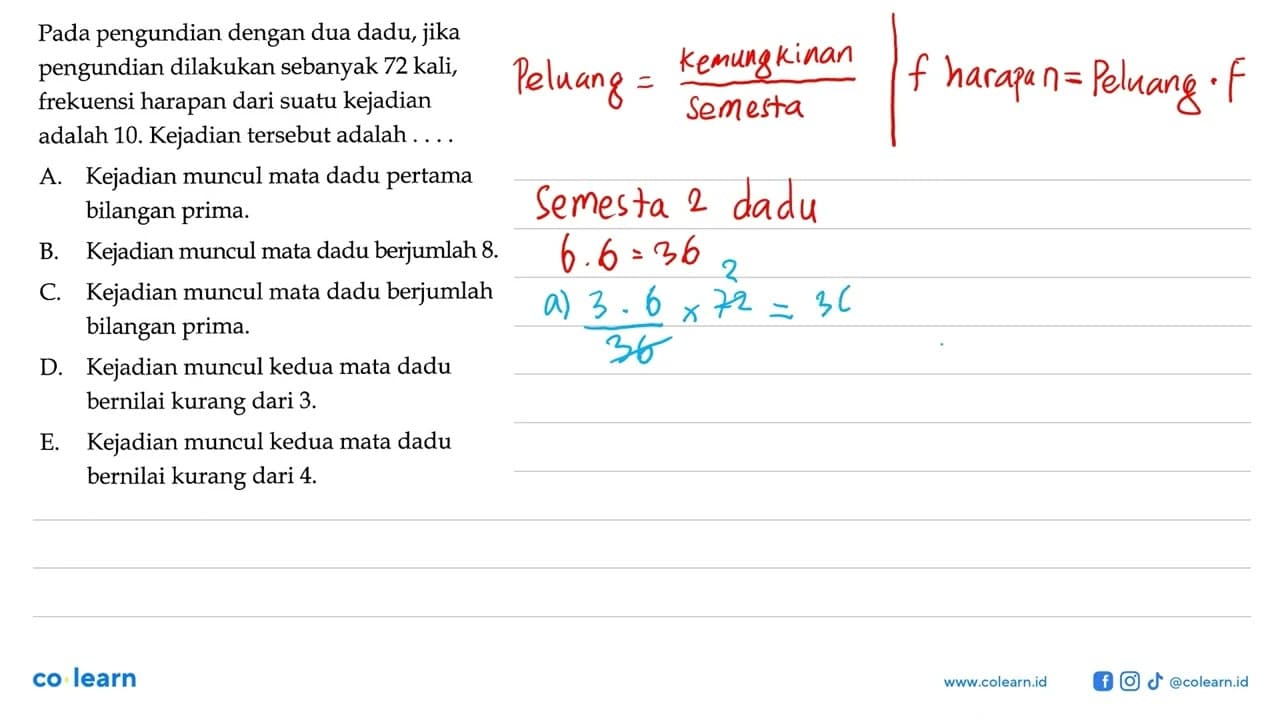 Pada pengundian dengan dua dadu, jika
pengundian dilakukan sebanyak 72 kali,
frekuensi harapan dari suatu kejadian
adalah 10. Kejadian tersebut adalah . . . .
A. Kejadian muncul mata dadu pertama
bilangan prima.
B. Kejadian muncul mata dadu berjumlah 8.
C. Kejadian muncul mata dadu berjumlah
bilangan prima.
D. Kejadian muncul kedua mata dadu
bernilai kurang dari 3.
E. Kejadian muncul kedua mata dadu
bernilai kurang dari 4.
Peluang = kemungkinan
Semesta
f harapan = Peluang . F
Semesta 2 dadu
6 . 6 = 36
2
a) 3 . 6 x 72 = 3(
36
co learn
www.colearn.id
@colearn.id